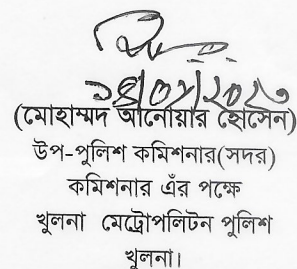 (মোহাম্মদ আনোয়ার হোসেন)
উপ-পুলিশ কমিশনার(সদর)
কমিশনার এঁর পক্ষে
খুলনা মেট্রোপলিটন পুলিশ
খুলনা।